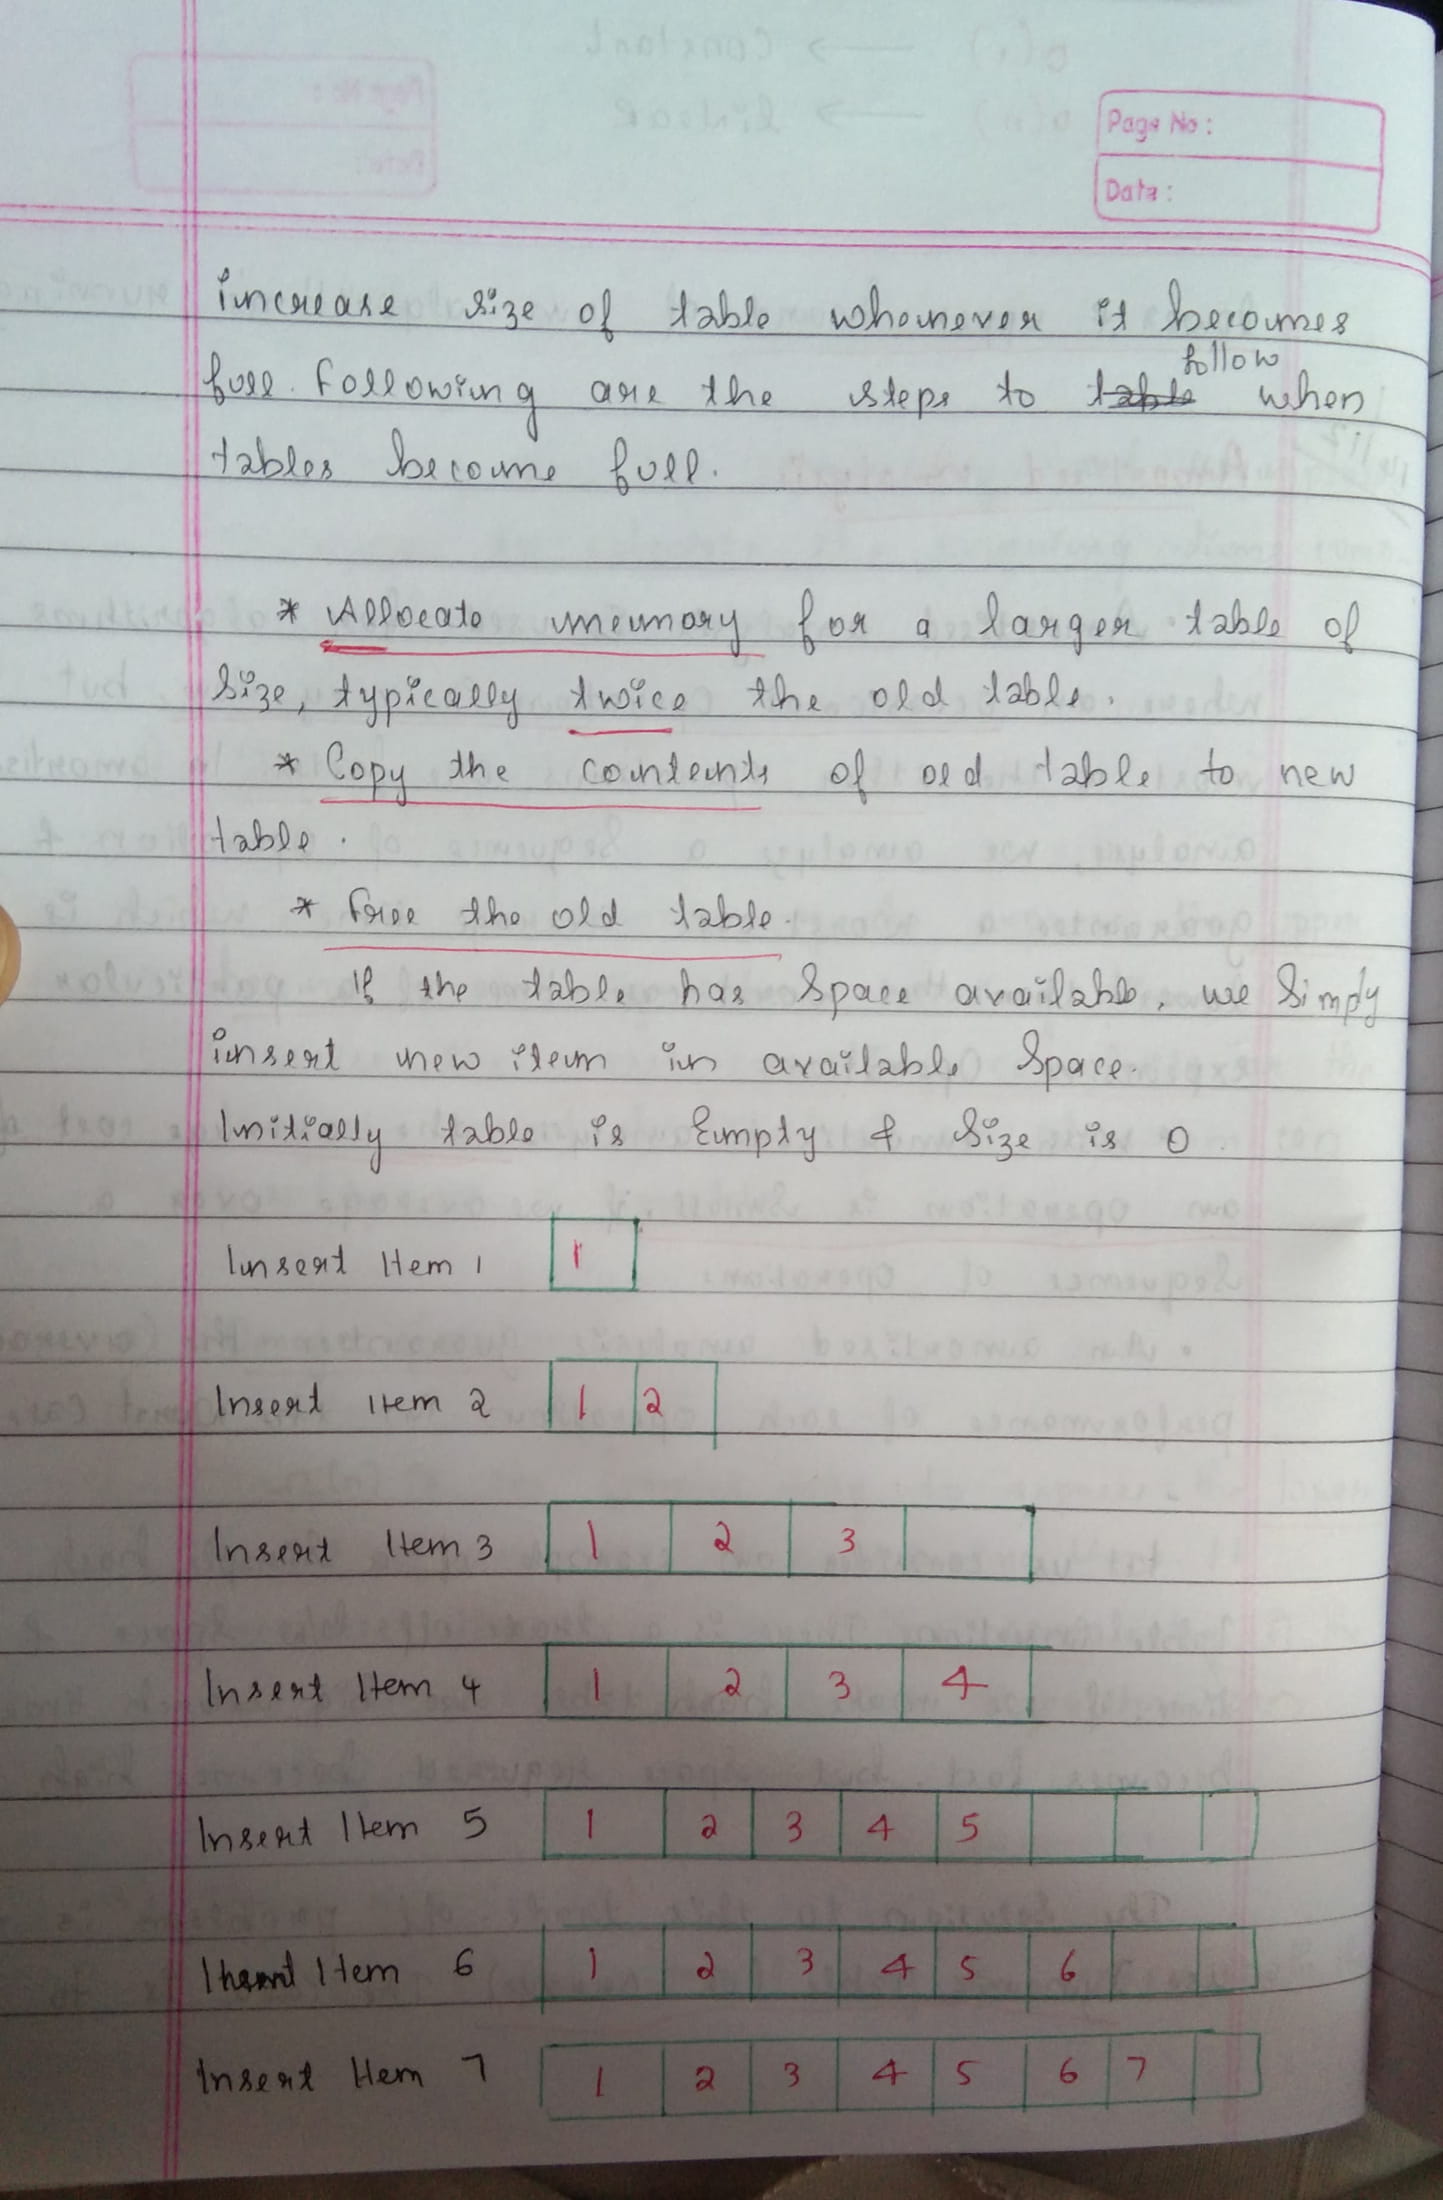 Page No :
Data :
increase size of table whomever it becomes
full. Following are the steps to table follow when
tables become full.
* Allocate memory for a larger table of
size, typically twice the old table.
* Copy the contents of old table to new
table.
* Free the old table.
If the table has space available, we simply
insert new item in available space.
Initially table is Empty & size is 0.
Insert Item 1 1
Insert Item 2 1 2
Insert Item 3 1 2 3
Insert Item 4 1 2 3 4
Insert Item 5 1 2 3 4 5
Insert Item 6 1 2 3 4 5 6
Insert Item 7 1 2 3 4 5 6 7